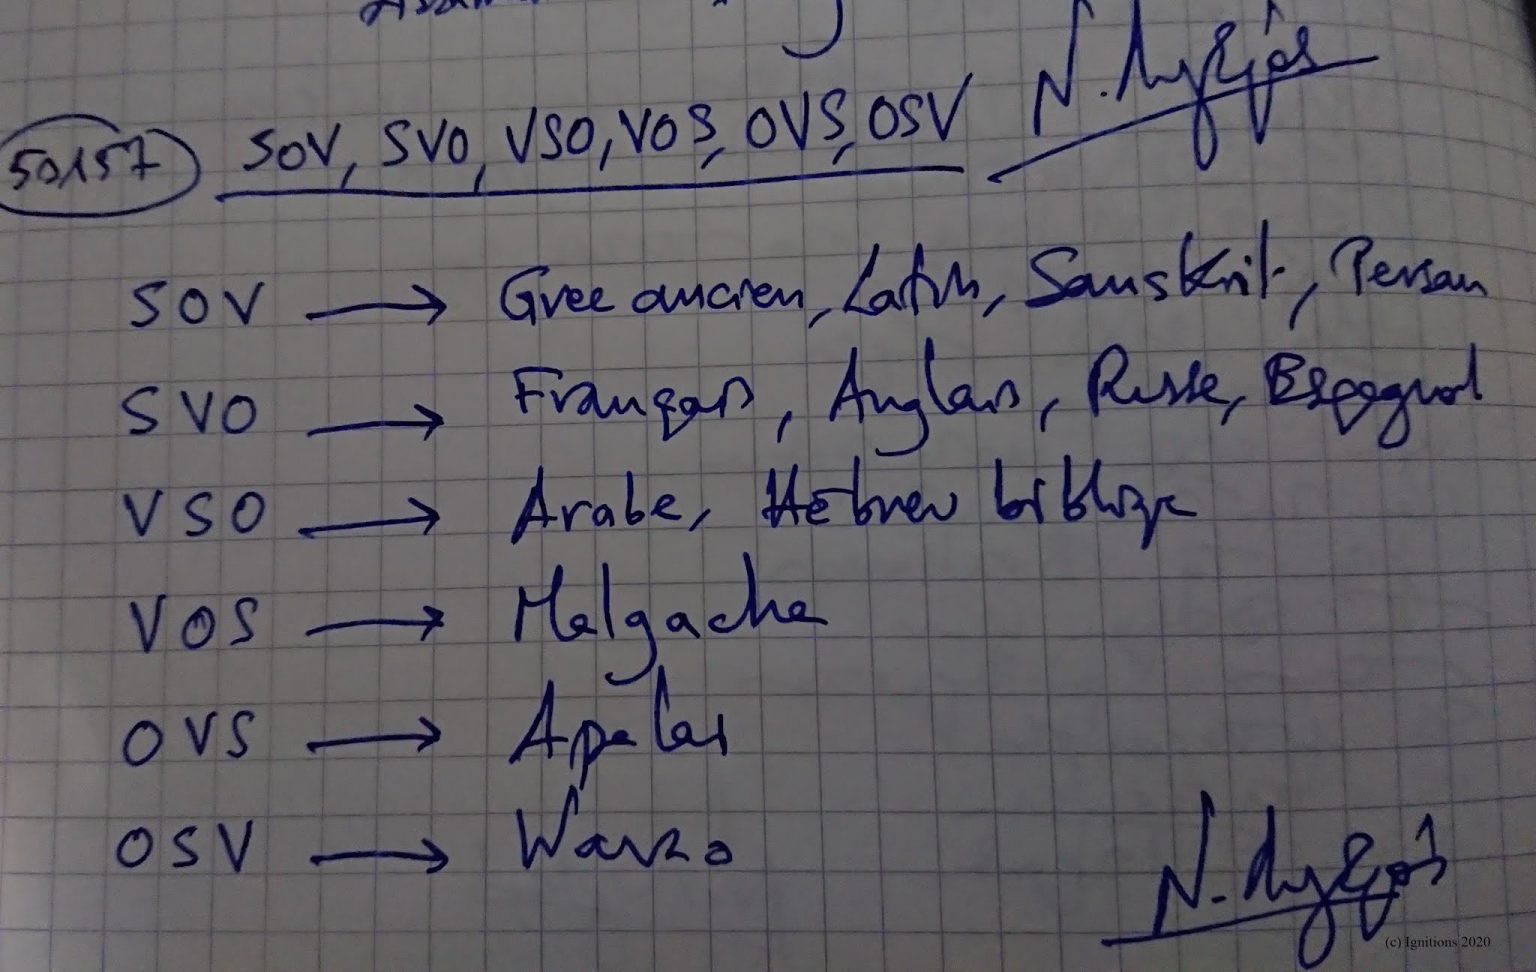 50157 SOV, SVO, VSO, VOS, OVS, OSV N. Lygeros
SOV → Grec ancien, Latin, Sanskrit, Persan
SVO → Français, Anglais, Russe, Espagnol
VSO → Arabe, Hébreu biblique
VOS → Malgache
OVS → Apalai
OSV → Warao
N. Lygeros
(c) Ignitions 2020